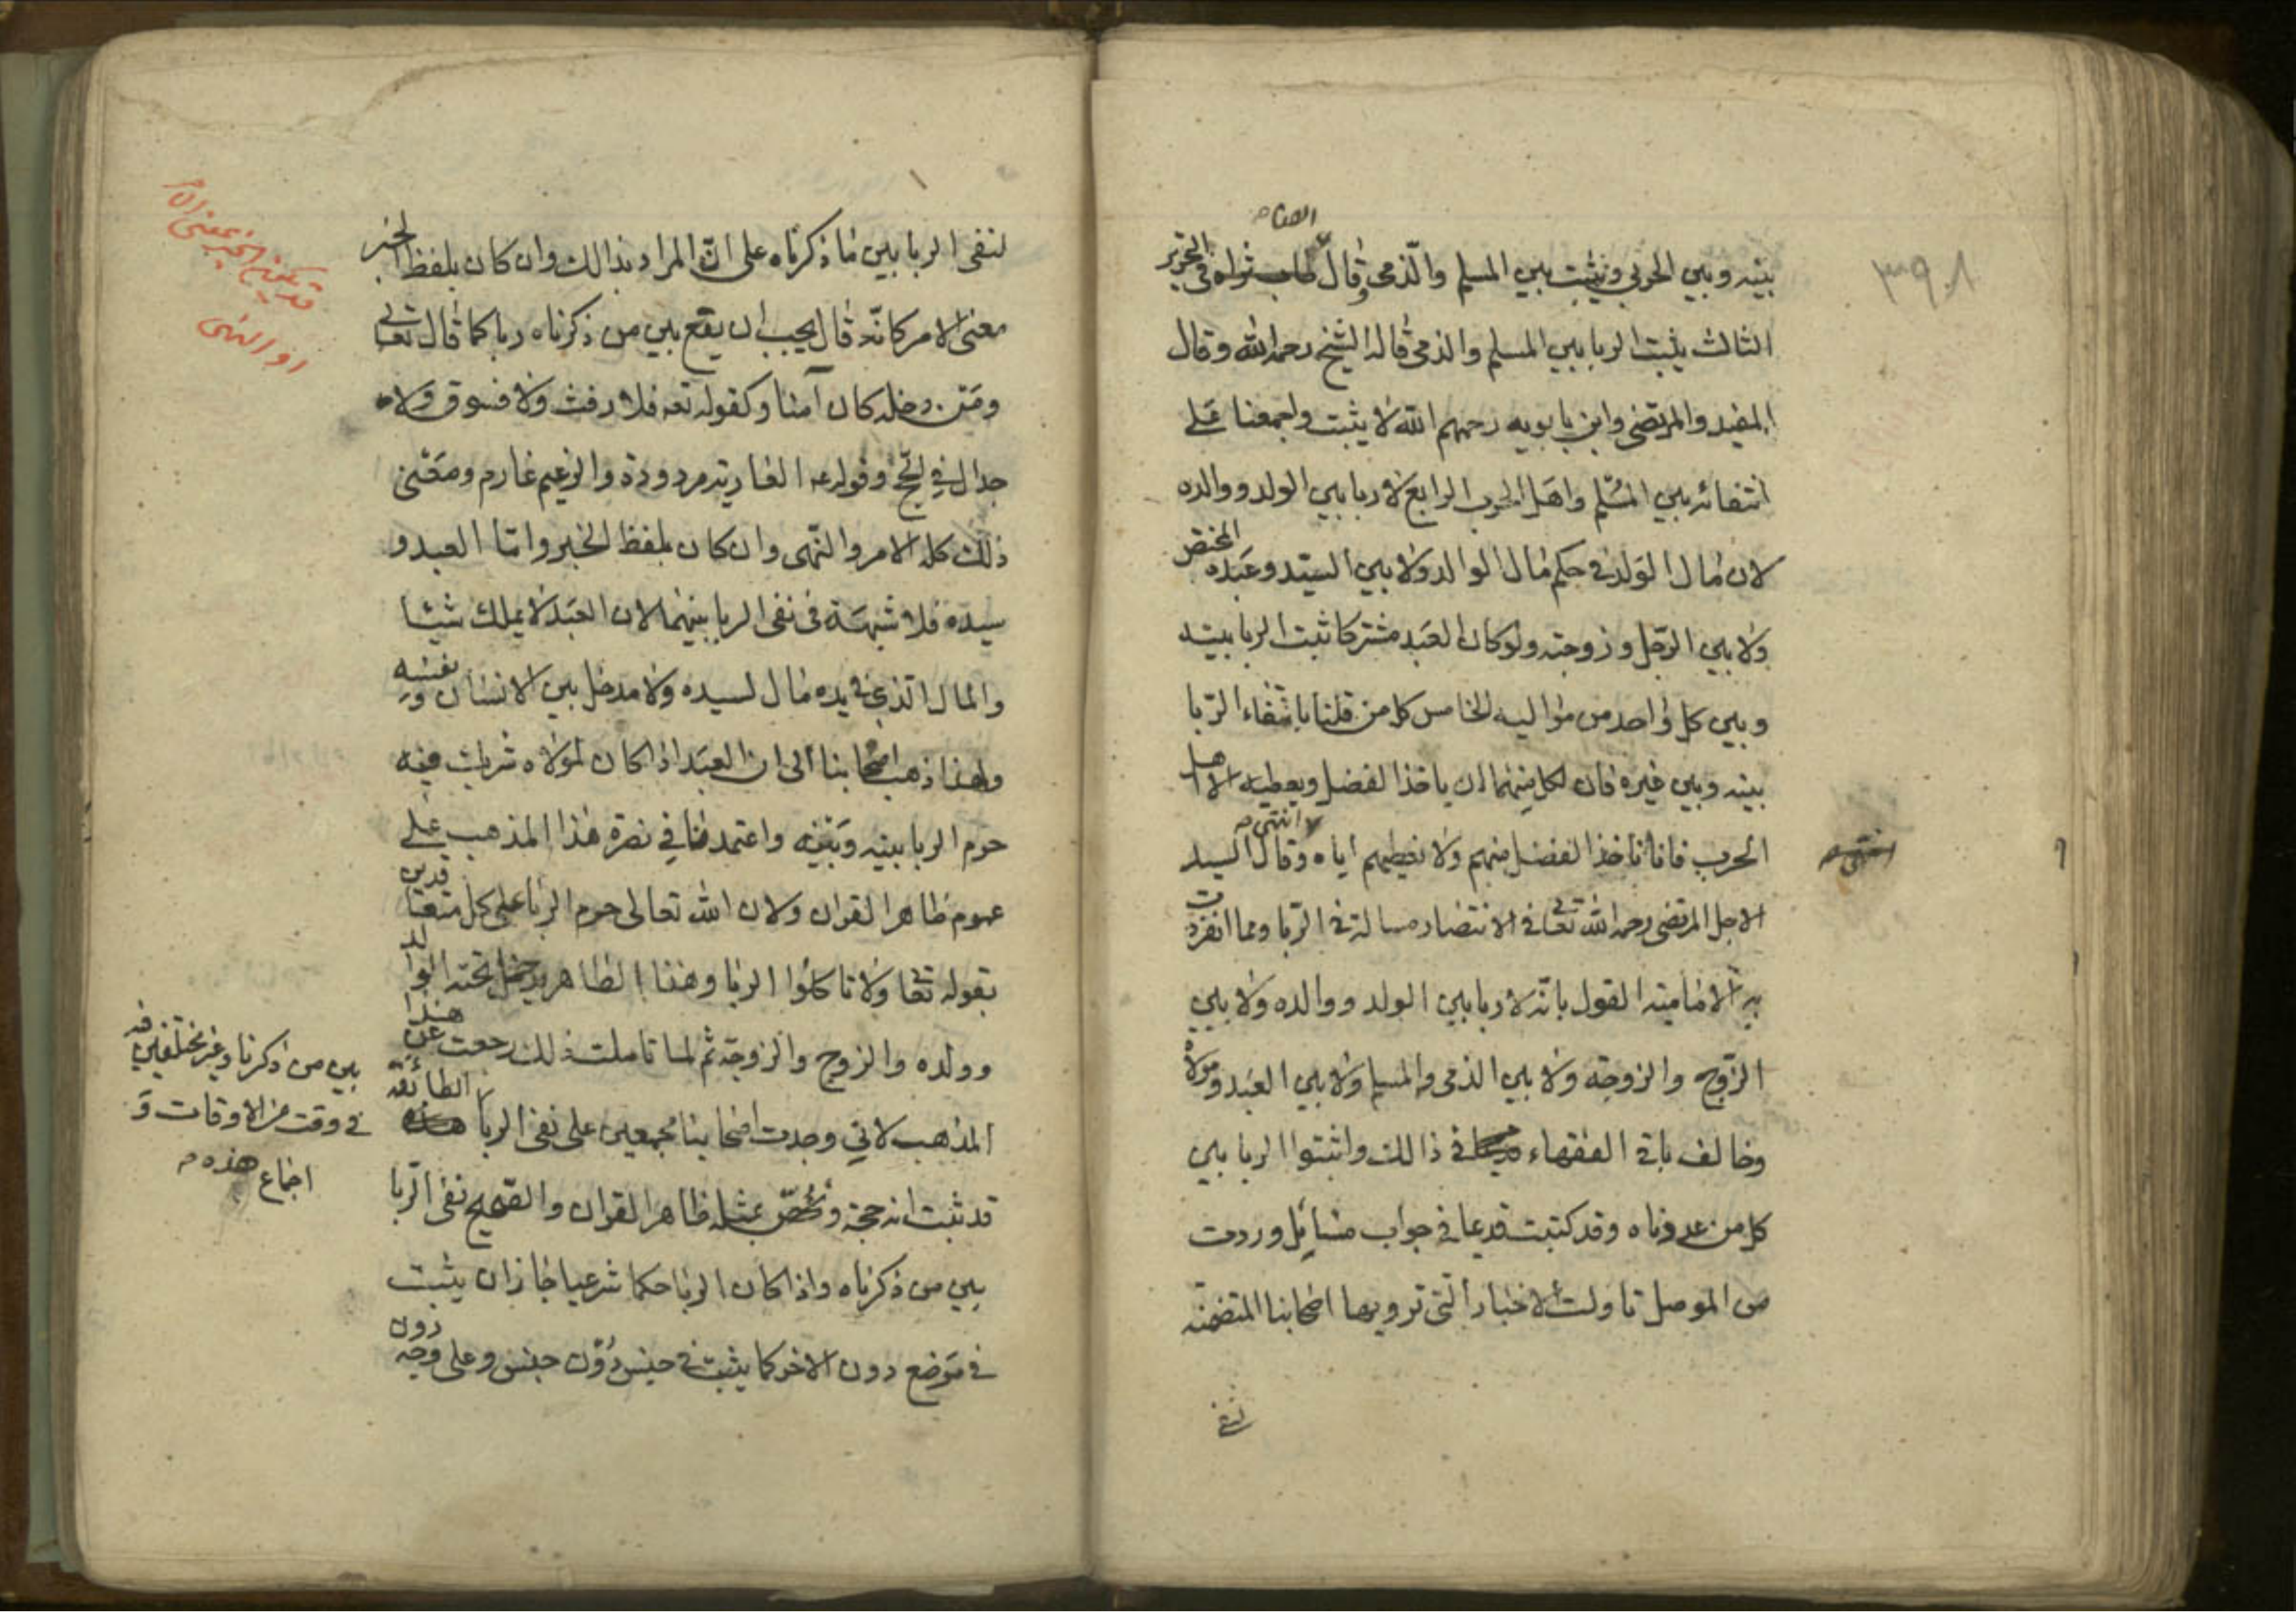 ٣٩٠٨
الامام
بينه وبين الحربي ويثبت بين المسلم والذمي وقال في التحرير
الثالث يثبت الربا بين المسلم والذمي قاله الشيخ رحمه الله وقال
المفيد والمرتضى وابن بابويه رحمهم الله لا يثبت واجمعنا على
انتفائه بين المسلم واهل الحرب الرابع لا ربا بين الولد ووالده
لان مال الولد في حكم مال الوالد ولا بين السيد وعبده المختص
ولا بين الرجل وزوجته ولو كان العبد مشتركا ثبت الربا بينه
وبين كل واحد من مواليه الخامس كل من قلنا بانتفاء الربا
بينه وبين غيره فان لكل منهما ان ياخذ الفضل ويعطيه الا اهل
الحرب فانا ناخذ الفضل منهم ولا نعطيهم اياه انتهى وقال السيد
الاجل المرتضى رحمه الله تعالى في الانتصار مسالة في الربا ومما انفردت
به الامامية القول بانه لا ربا بين الولد ووالده ولا بين
الزوج والزوجة ولا بين الذمي والمسلم ولا بين العبد ومولاه
وخالف باقي الفقهاء في ذالك واثبتوا الربا بين
كل من عددناه وقد كتبت قديما في جواب مسائل وردت
من الموصل تاولت الاخبار التي ترويها اصحابنا المتضمنة
لنفي
لنفي الربا بين ما ذكرناه على ان المراد بذالك وان كان بلفظ الخبر
معنى الامر كانه قال يجب ان يقع بين من ذكرناه ربا كما قال تعالى
ومن دخله كان آمنا وكقوله تعه فلا رفث ولا فسوق ولا
جدال في الحج وقوله عه العارية مردودة والزعيم غارم ومعنى
ذلك كله الامر والنهى وان كان بلفظ الخبر واما العبد و
سيده فلا شبهة في نفي الربا بينهما لان العبد لا يملك شيئا
والمال الذي في يده مال لسيده ولا مدخل بين الانسان ونفسه
ولهذا ذهب اصحابنا الى ان العبد اذا كان لمولاه شريك فيه
حرم الربا بينه وبينه واعتمدنا في نصرة هذا المذهب على
عموم ظاهر القران ولان الله تعالى حرم الربا على كل متعاقدين
بقوله تعالى ولا تاكلوا الربا وهذا الظاهر يدخل تحته الوالد
وولده والزوج والزوجة ثم لما تاملت ذلك رجعت عن هذا
المذهب لاني وجدت اصحابنا مجمعين على نفى الربا الطائفة
قد ثبت انه حجة ونخص بمثله ظاهر القران والصحيح نفى الربا
بين من ذكرناه واذا كان الربا حكما شرعيا جاز ان يثبت
في موضع دون الاخر كما يثبت في جنس دون جنس وعلى وجه دون
قد يكون الخبر بمعنى الامر
او النهى
بين من ذكرنا وغير مختلفين فيه
في وقت من الاوقات و
اجماع هذه